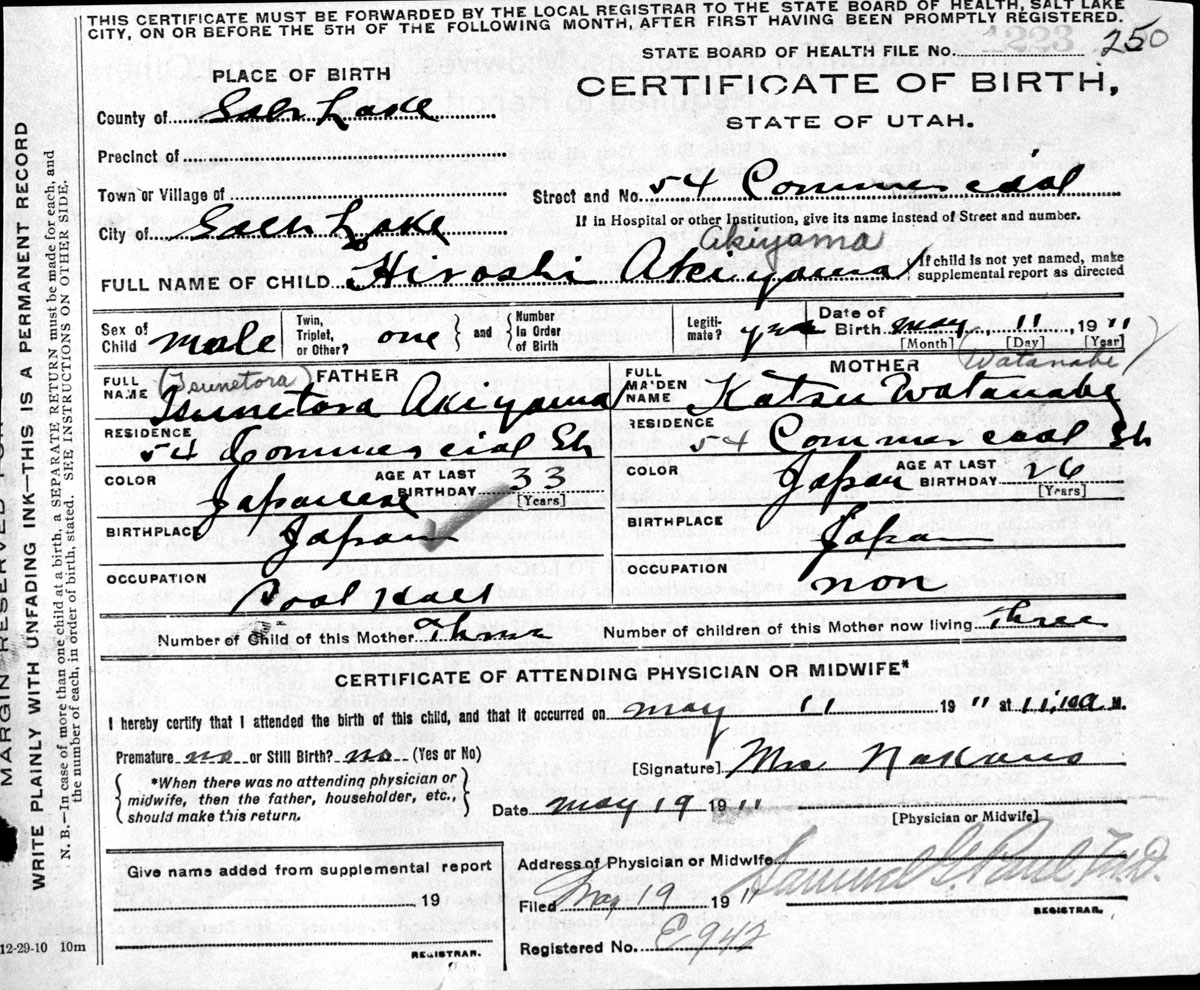 THIS CERTIFICATE MUST BE FORWARDED BY THE LOCAL REGISTRAR TO THE STATE BOARD OF HEALTH, SALT LAKE
CITY, ON OR BEFORE THE 5TH OF THE FOLLOWING MONTH, AFTER FIRST HAVING BEEN PROMPTLY REGISTERED.
STATE BOARD OF HEALTH FILE No. 250
PLACE OF BIRTH
CERTIFICATE OF BIRTH,
STATE OF UTAH.
County of Salt Lake
Precinct of
Town or Village of
Street and No. 54 Commercial
If in Hospital or other Institution, give its name instead of Street and number.
City of Salt Lake
Akiyama
FULL NAME OF CHILD Hiroshi Akiyama { If child is not yet named, make
supplemental report as directed
Sex of Child male Twin, Triplet, or Other? one } and { Number In Order of Birth Legiti-mate? yes Date of Birth May, 11, 1911
[Month] [Day] [Year]
FATHER
MOTHER
(Tsunetora) (Watanabe)
FULL NAME Tsunetora Akiyama
FULL MAIDEN NAME Katsu Watanabe
RESIDENCE 54 Commercial St
RESIDENCE 54 Commercial St
COLOR Japanese AGE AT LAST BIRTHDAY 33 [Years]
COLOR Japan AGE AT LAST BIRTHDAY 26 [Years]
BIRTHPLACE Japan
BIRTHPLACE Japan
OCCUPATION Pool Hall
OCCUPATION non
Number of Child of this Mother Three Number of children of this Mother now living Three
CERTIFICATE OF ATTENDING PHYSICIAN OR MIDWIFE*
I hereby certify that I attended the birth of this child, and that it occurred on May 11 1911 at M.
Premature no or Still Birth? no (Yes or No)
{ *When there was no attending physician or
midwife, then the father, householder, etc.,
should make this return. }
[Signature] Mrs
Date May 19 1911
[Physician or Midwife]
Give name added from supplemental report
19
REGISTRAR.
Address of Physician or Midwife
Filed May 19 1911 Samuel G. Paul M.D.
REGISTRAR.
Registered No. E942
12-29-10 10m
MARGIN RESERVED
WRITE PLAINLY WITH UNFADING INK—THIS IS A PERMANENT RECORD
N. B.—In case of more than one child at a birth, a SEPARATE RETURN must be made for each, and
the number of each, in order of birth, stated. SEE INSTRUCTIONS ON OTHER SIDE.